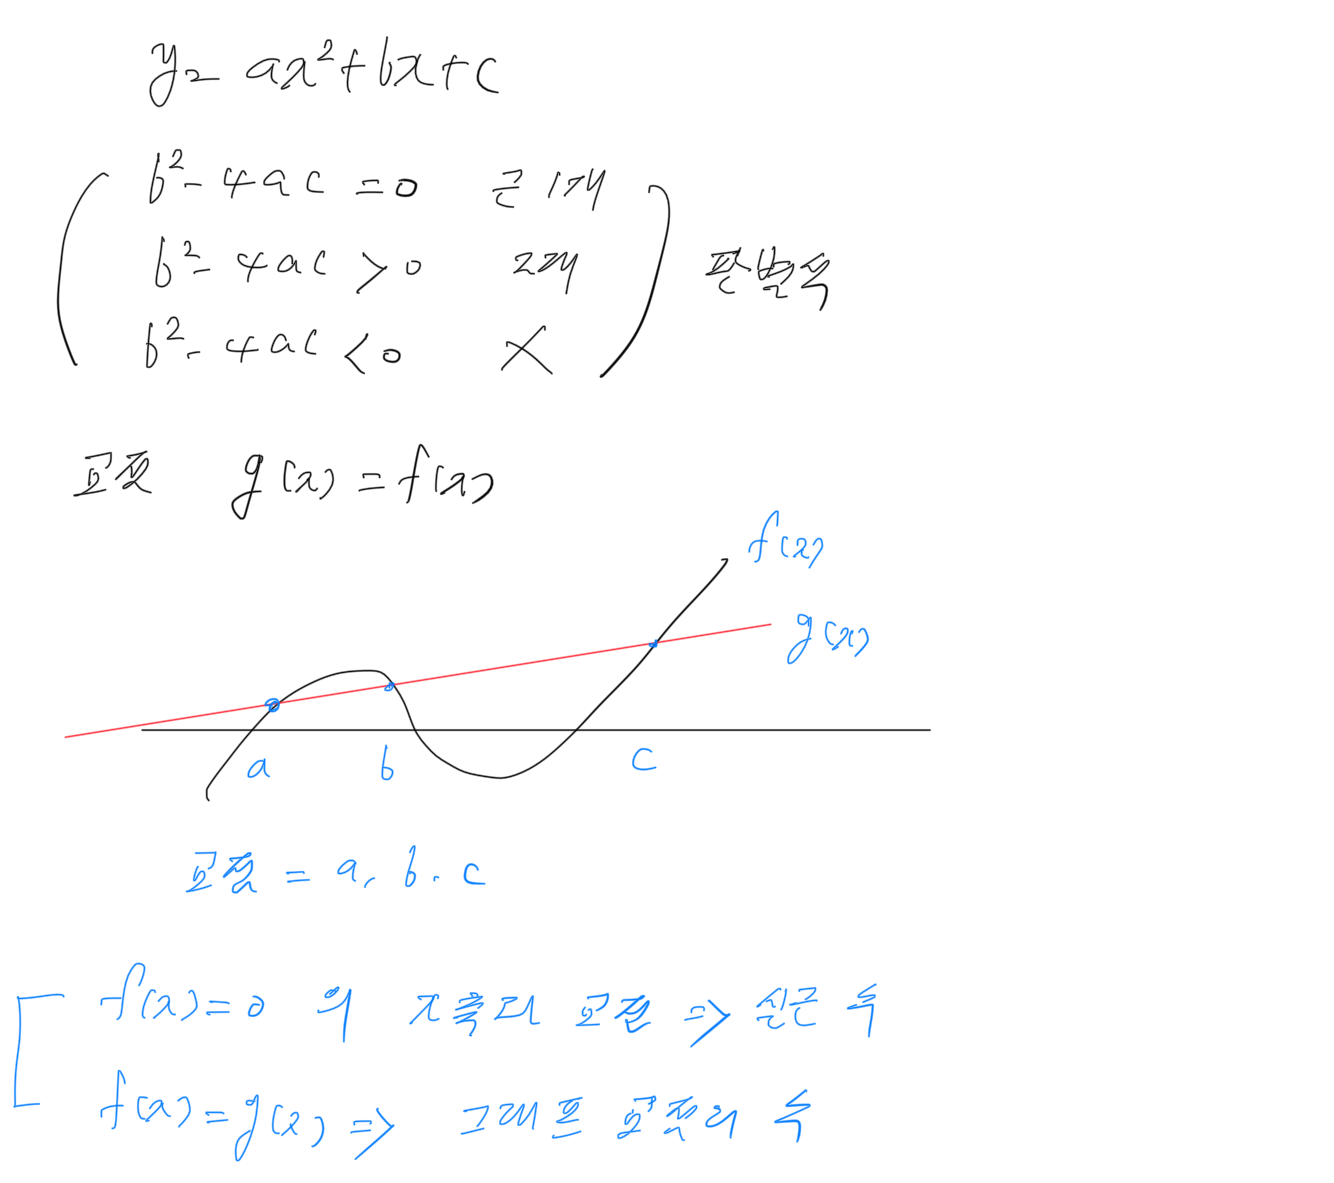 y = ax²+bx+c
b²-4ac = 0 근 1개
b²-4ac > 0 2개 판별식
b²-4ac < 0 X
교점 g(x) = f(x)
f(x)
g(x)
a b c
교점 = a, b. c
f(x) = 0 의 x축과 교점 => 실근 수
f(x) = g(x) => 그래프 교점의 수